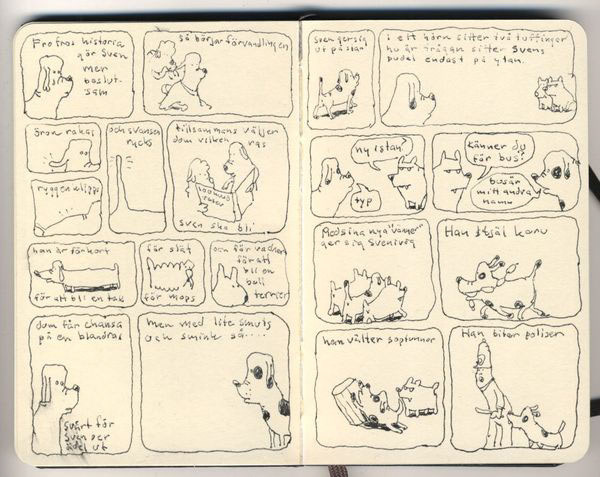 Frofros historia
gör Sven
mer
beslut-
sam
så börjar förvandlingen
öron rakas
och svansen
rycks
tillsammans väljer
dom vilken ras
100 hund
raser
Sven ska bli
ryggen klipps
han är för kort
för att bli en tax
för slät
för mops
och för vacker
för att
bli en
bull
terrier
dom får chansa
på en blandras
svårt för
Sven ser
ädel ut
men med lite smuts
och smink så.....
Sven ger sig
ut på stan
i ett hörn sitter två tuffingar
nu är frågan sitter Svens
pudel endast på ytan.
ny i stan?
typ
känner du
för bus?
bus är
mitt andra
namn
Med sina nya "vänner"
ger sig Sven iväg
Han stjäl korv
han välter soptunnor
Han biter poliser